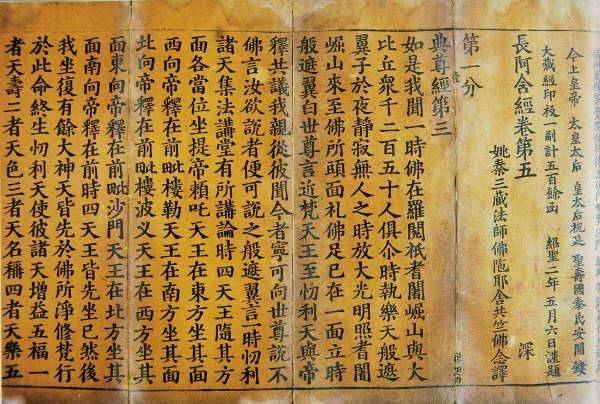 今上皇帝 太皇太后 皇太后祝延 聖壽國泰民安開鏤
大藏經印板一副計五百餘函 紹聖二年五月六日謹題
長阿含經卷第五 深
姚秦三藏法師佛陁耶舍共竺佛念譯
第一分
典尊經第三
如是我聞一時佛在羅閱祇耆闍崛山與大
比丘衆千二百五十人俱尒時執樂天般遮
翼子於夜静寂無人之時放大光明照耆闍
崛山來至佛所頭面礼佛足已在一面立時
般遮翼白世尊言近梵天王至忉利天與帝
釋共議我親從彼聞今者寧可向世尊說不
佛言汝欲說者便可說之般遮翼言一時忉利
諸天集法講堂有所講論時四天王隨其方
面各當位坐提帝賴吒天王在東方坐其面
西向帝釋在前毗樓勒天王在南方坐其面
北向帝釋在前毗樓波叉天王在西方坐其
面東向帝釋在前毗沙門天王在北方坐其
面南向帝釋在前時四天王皆先坐已然後
我坐復有餘大神天皆先於佛所淨修梵行
於此命終生忉利天使彼諸天增益五福一
者天壽二者天色三者天名稱四者天樂五